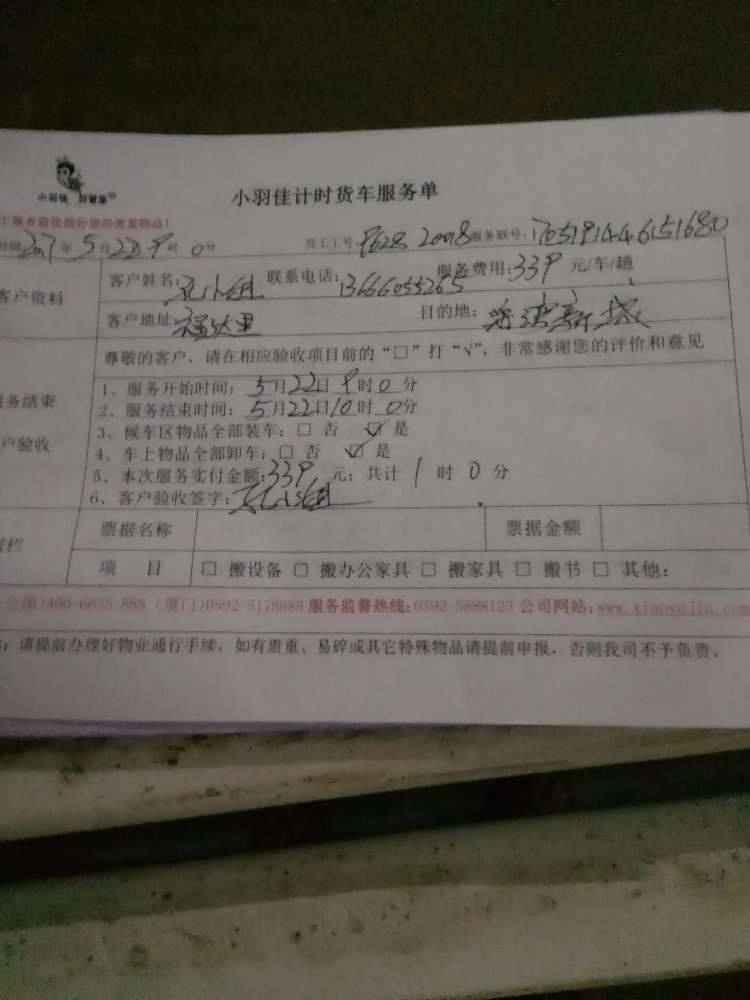 小羽佳 好管家
小羽佳计时货车服务单
服务前收拾好您的贵重物品！
2017年5月22日9时0分 员工工号:9628 2098 服务联号:
客户资料
客户姓名: 小姐 联系电话:13666055265 服务费用:339 元/车/趟
客户地址:福达里 目的地: 新城
尊敬的客户，请在相应验收项目前的“□”打“√”，非常感谢您的评价和意见
服务结束
客户验收
1、服务开始时间：5月22日9时0分
2、服务结束时间：5月22日10时0分
3、候车区物品全部装车：□ 否 ☑ 是
4、车上物品全部卸车：□ 否 ☑ 是
5、本次服务实付金额:339 元；共计 1 时 0 分
6、客户验收签字： 小姐
栏
票据名称 票据金额
项 目 □ 搬设备 □ 搬办公家具 □ 搬家具 □ 搬书 □ 其他：
全国)400-6655-888 (厦门)0592-5178888 服务监督热线:0592-5888123 公司网站:www.xiaoyujia.com
：请提前办理好物业通行手续，如有贵重、易碎或其它特殊物品请提前申报，否则我司不予负责。